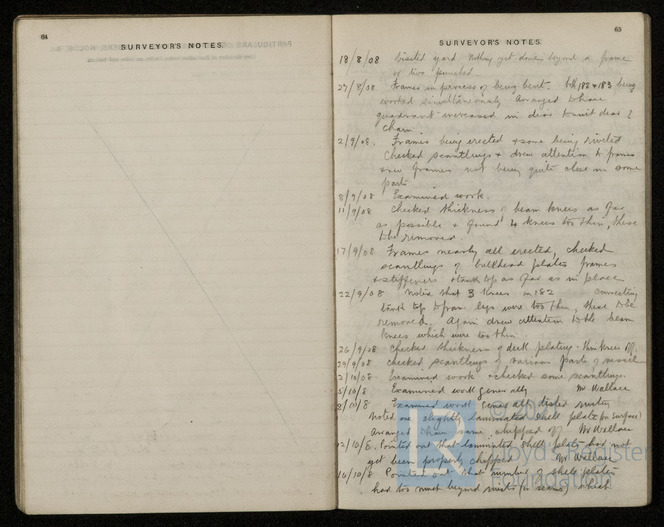 64
SURVEYOR'S NOTES.
65
SURVEYOR'S NOTES.
18/8/08 Visited yard Nothing yet done beyond a frame
or two punched.
27/8/08 Frames in process of being bent. 182 & 183 being
worked simultaneously Arranged to have
quadrant increased in diar to suit diar of
chain.
2/9/08. Frames being erected & some being riveted
Checked scantlings & drew attention to frames
frames not being quite close in some
parts
8/9/08 Examined work.
11/9/08 Checked thickness of beam knees as far
as possible & found 4 knees too thin, these
to be removed.
17/9/08 Frames nearly all erected, checked
scantlings of bulkhead plates frames
& stiffeners & tank top as far as in place
22/9/08 Notice that 3 knees in 182 connecting
tank top to fram legs were too thin, these to be
removed. Again drew attention to the beam
knees which were too thin.
26/9/08 Checked thickness of deck plating. Thin knees off.
29/9/08 Checked scantlings of various parts of vessel
2/10/08 Examined work & checked some scantlings
5/10/8 Examined work generally Mr Wallace
8/10/8 Examined work generally tested rivets
Noted one slightly laminated shell plate (in surface)
Arranged to have same chipped off Mr Wallace
12/10/8. Pointed out that laminated shell plate had not
yet been properly chipped Mr Wallace
16/10/8 Pointed out that number of shell plates
had too much beyond rivets (in seams) which
© 20
Lloyd's Register
Foundation